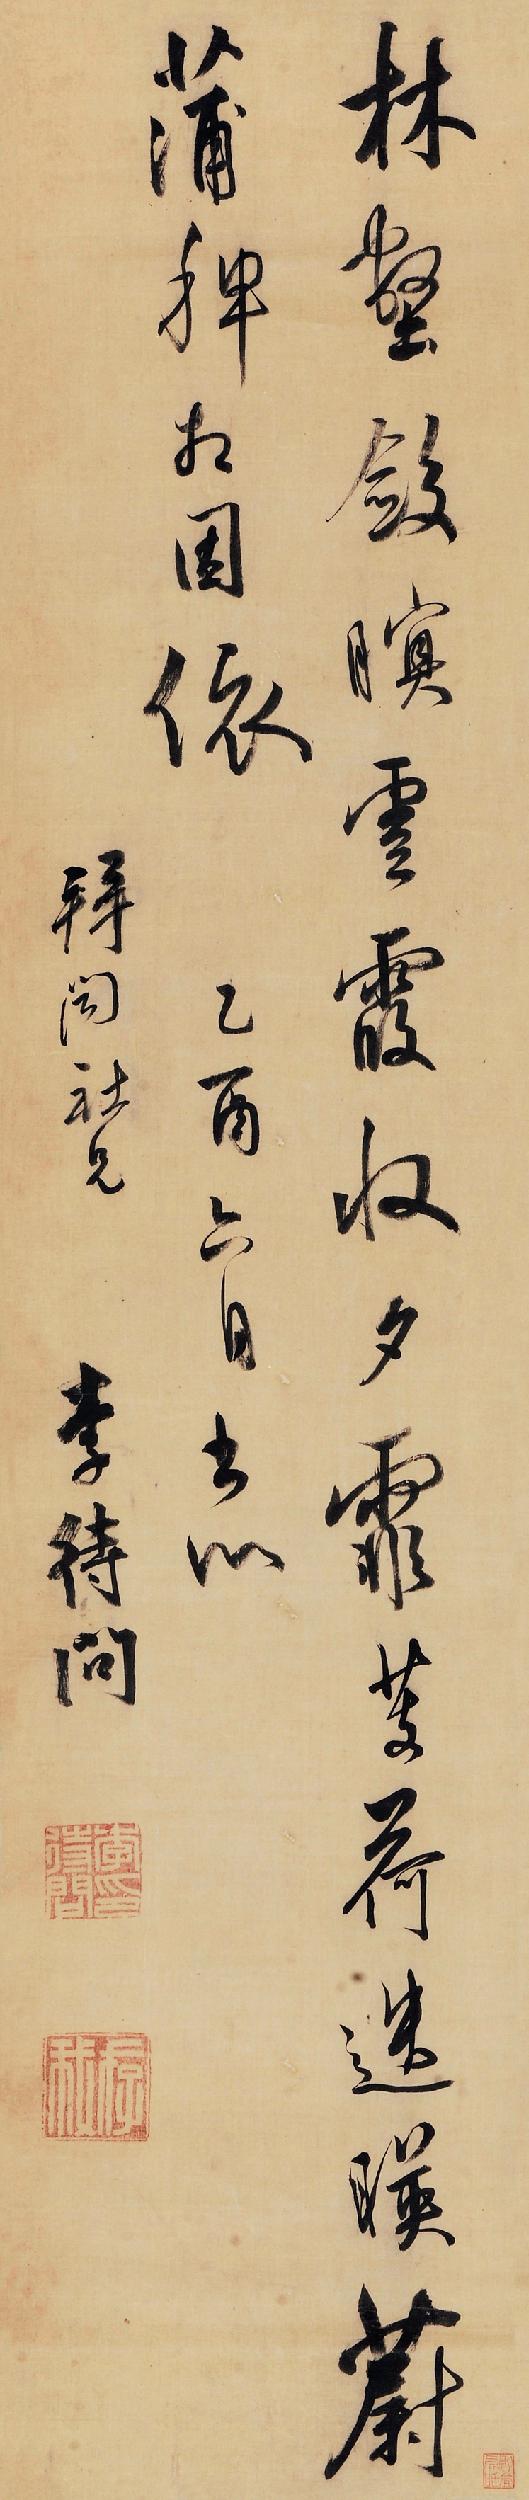 林壑斂暝雲霞收夕霏芰荷迭暎蔚
蒲稗相因依
乙酉六月書似
闇社兄
李待問
李待問印